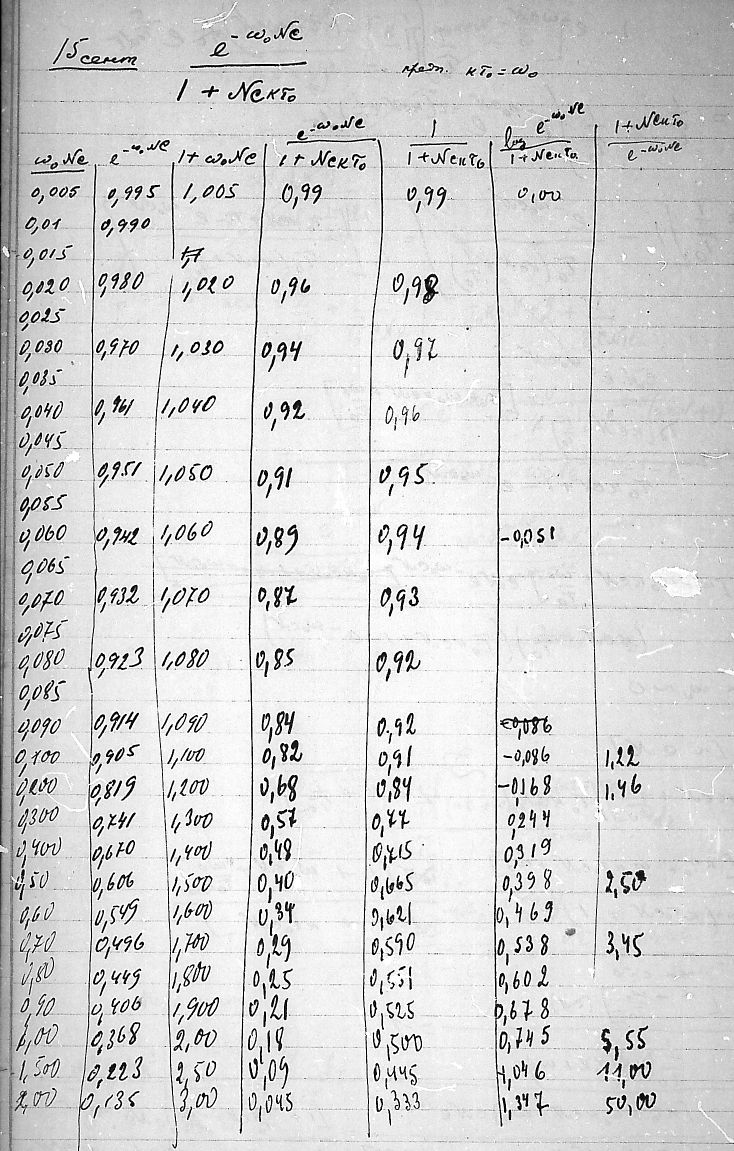 15 сент e^{-ω₀Nc}
1 + Ncкτ₀ кτ₀ = ω₀
ω₀Nc e^{-ω₀Nc} 1 + ω₀Nc e^{-ω₀Nc} / 1 + Ncкτ₀ 1 / 1 + Ncкτ₀ log e^{-ω₀Nc} / 1 + Ncкτ₀ 1 + Ncкτ₀ / e^{-ω₀Nc}
0,005 0,995 1,005 0,99 0,99 0,00
0,01 0,990
0,015
0,020 0,980 1,020 0,96 0,98
0,025
0,030 0,970 1,030 0,94 0,97
0,035
0,040 0,961 1,040 0,92 0,96
0,045
0,050 0,951 1,050 0,91 0,95
0,055
0,060 0,942 1,060 0,89 0,94 -0,051
0,065
0,070 0,932 1,070 0,87 0,93
0,075
0,080 0,923 1,080 0,85 0,92
0,085
0,090 0,914 1,090 0,84 0,92 -0,086
0,100 0,905 1,100 0,82 0,91 -0,086 1,22
0,200 0,819 1,200 0,68 0,84 -0,168 1,46
0,300 0,741 1,300 0,57 0,77 0,244
0,400 0,670 1,400 0,48 0,715 0,319
0,50 0,606 1,500 0,40 0,665 0,398 2,50
0,60 0,549 1,600 0,34 0,621 0,469
0,70 0,496 1,700 0,29 0,590 0,538 3,45
0,80 0,449 1,800 0,25 0,551 0,602
0,90 0,406 1,900 0,21 0,525 0,678
1,00 0,368 2,00 0,18 0,500 0,745 5,55
1,500 0,223 2,50 0,09 0,445 1,046 11,00
2,00 0,135 3,00 0,045 0,333 1,347 50,00